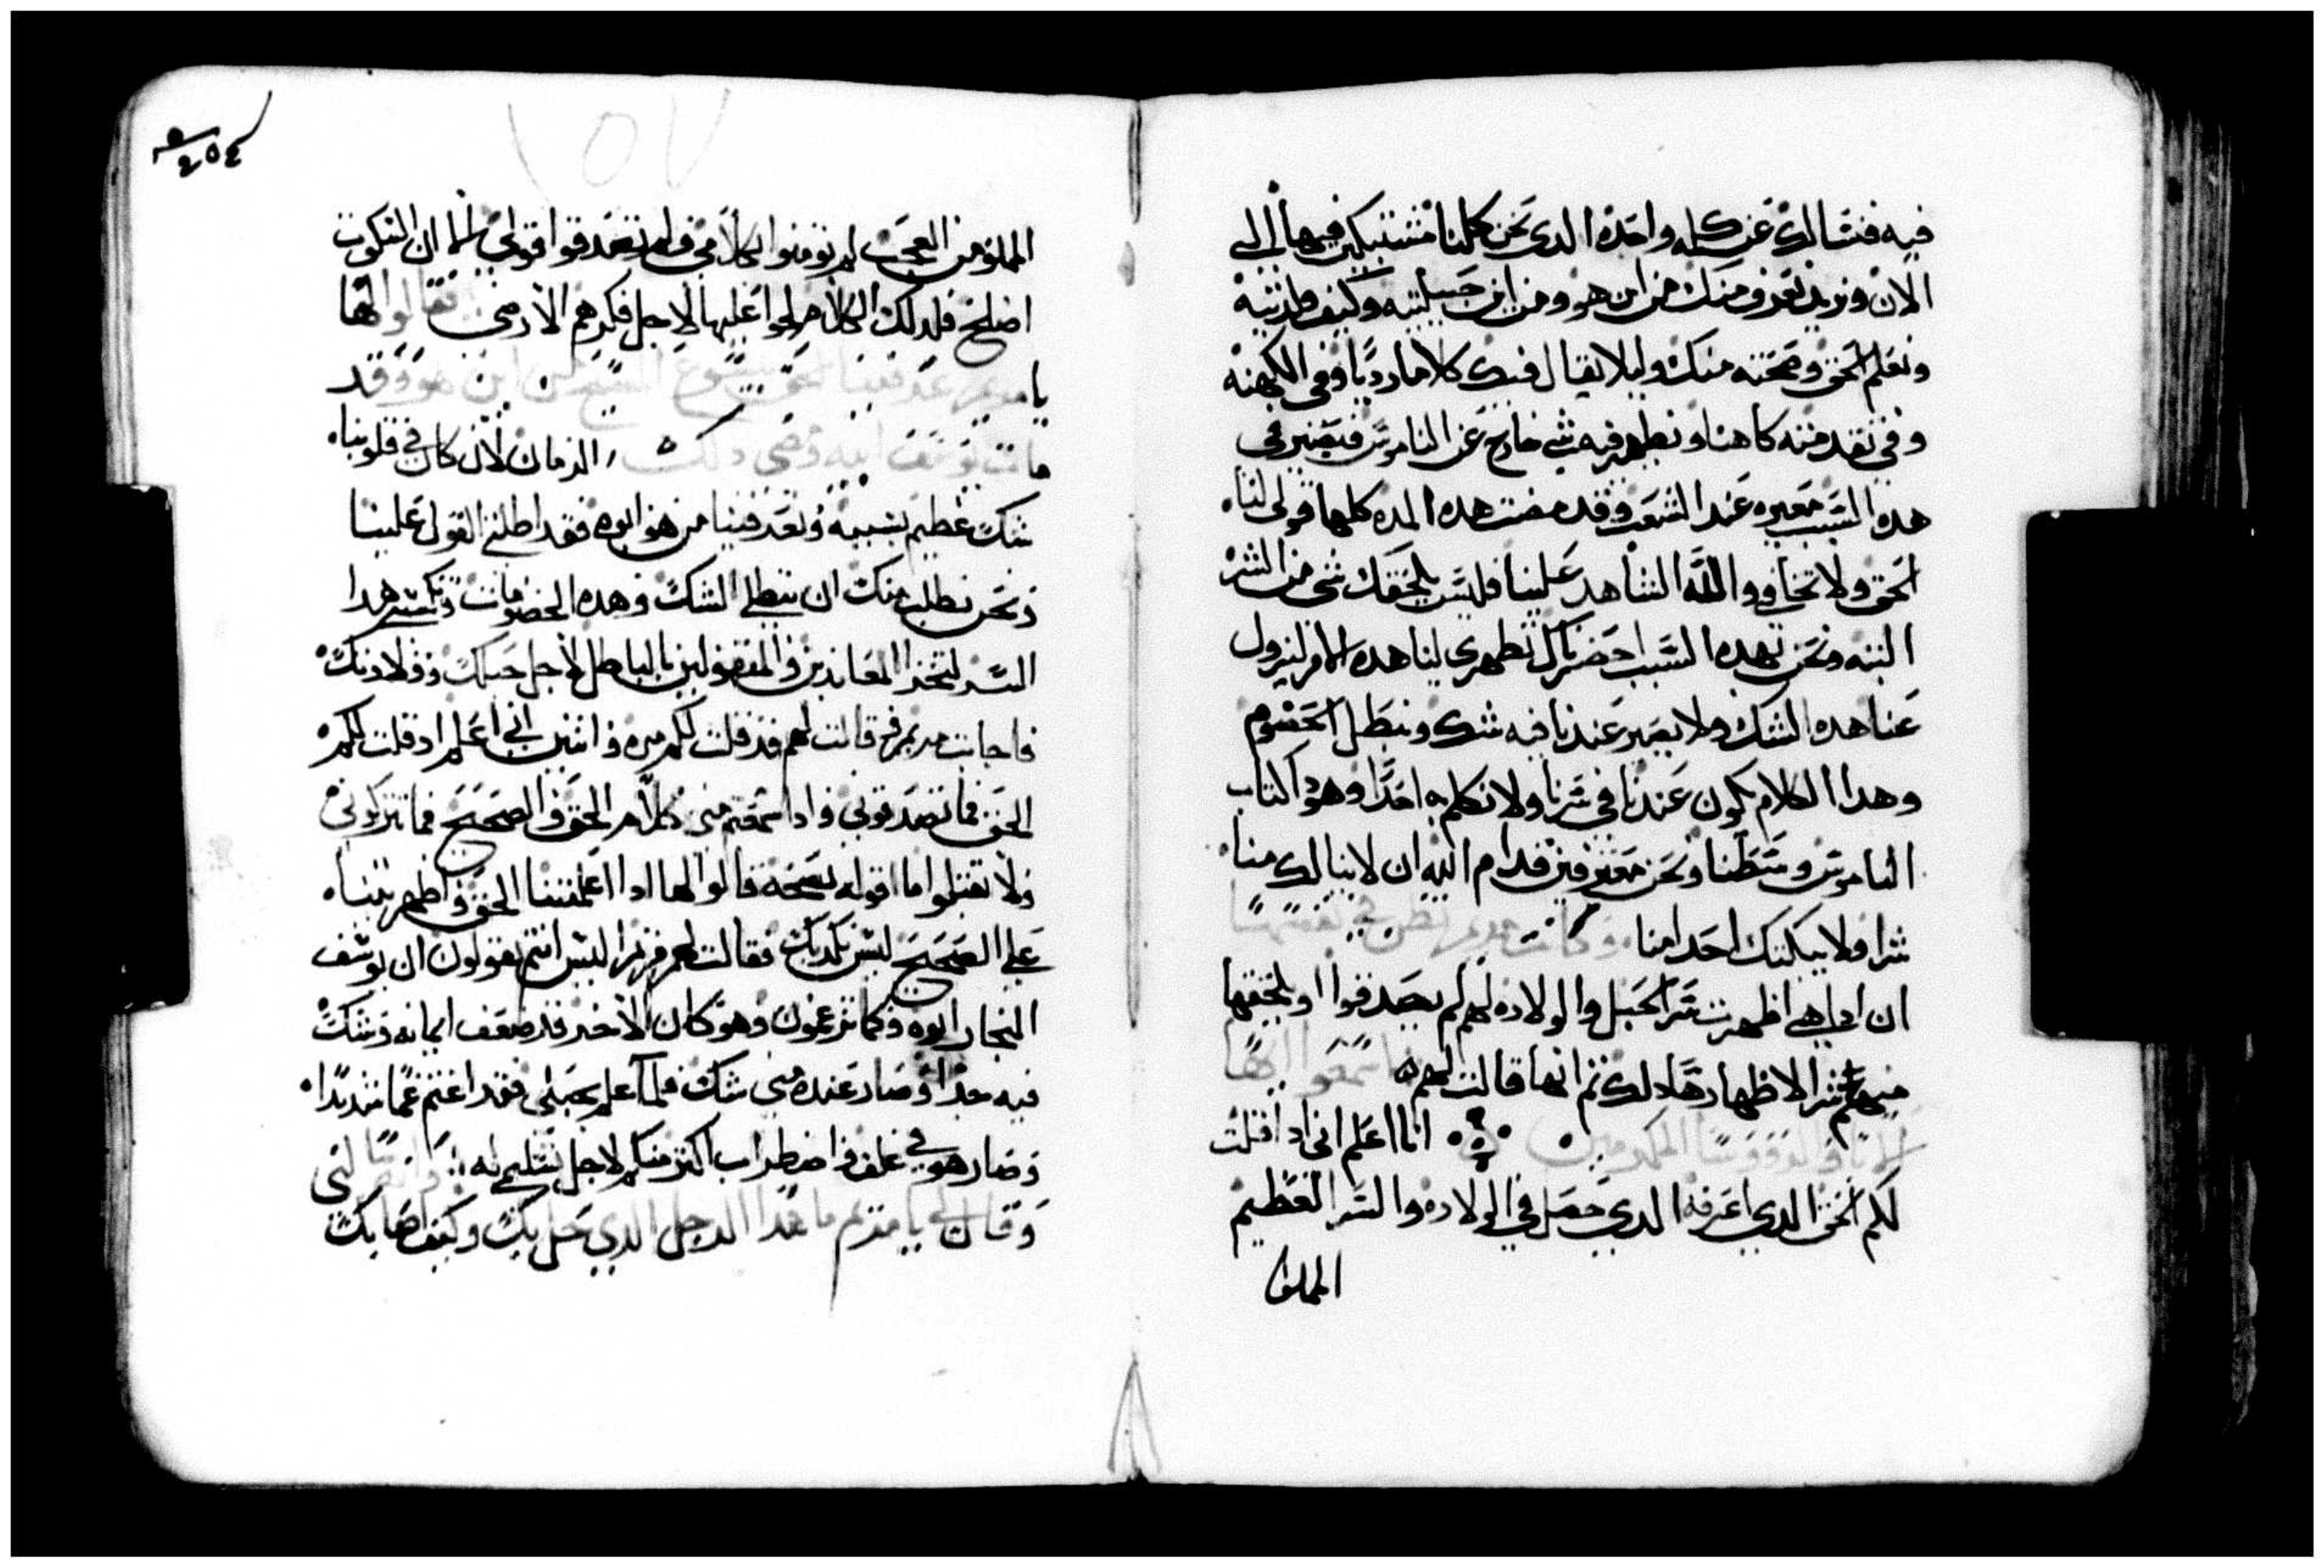 فيه فنسالك عن كلمه واحده الدي نحن كلنا مشتبكين فيها الى
الان ونريد نعرف منك من اين هو ومن اين حبلتيه وكيف ولدتيه
ونعلم الحق وصحته منك وليلا يقال فيك كلاما رديا وفي الكهنه
وفي تقدمته كاهنا ويظهر فيه شي خارج عن الناموس فيصير في
هده السبب معيره عند الشعب وقد مضت هده المده كلها قولي لنا
الحق ولا تخافي والله الشاهد علينا فليس يلحقك شي من الشر
البته ونحن بهده السبب احضرناك تظهري لنا هده الامر ليزول
عنا هده الشك ولا يصير عندنا فيه شك ونبطل الخصوم
وهدا الكلام يكون عندنا في سرنا ولا نكلم به احدا وهودا كتاب
الناموس وسطنا ونحن معترفين قدام الله ان لا ينالك منا
شرا ولا يبكتك احدا منا وكانت مريم تظن في نفسها
ان اداهي اظهرت سر الحبل والولاده لهم لم يصدقوا او يلحقها
منهم شرا لاظهارها دلك ثم انها قالت لهم اسمعوا ايها
الابا والقسوسا المكرمين انا اعلم اني ادا قلت
لكم الحق الدي اعرفه الدي حصل في الولاده والسر العظيم
المملوا
١٥٧
٢٥٤
المملوا من العجب لم تومنوا بكلامي ولم تصدقوا قولي لما ان السكوت
اصلح فلدلك الكلام لحوا عليها لاجل فكرهم الارضي فقالوا لها
يا مريم عرفينا لحق يشوع المسيح من اين هو وقد
مات يوسف ابيه ومضى دلك الزمان لان كان في قلوبنا
شك عظيم بسببه وتعرفينا من هو ابوه فقد اطلتي القول علينا
ونحن نطلب منك ان تبطلي الشك وهده الخصومات وتكشفي هدا
السر لتخزا المعاندين والمتقولين بالباطل لاجل حبلك وولادتك
فاجابت مريم وقالت لهم قد قلت لكم مره واتنين اني اعلم ادا قلت لكم
الحق فما تصدقوني وادا سمعتم مني كلام الحق والصحيح فما تتركوني
ولا تقبلوا ما اقوله بصحة قالوا لها ادا اعلمتينا الحق واظهرتينا
على الصحيح ليس نكدبك فقالت لهم مريم اليس انتم تقولون ان يوسف
النجار ابوه وكما تزعمون وهو كان الاخر قد ضعف ايمانه وشك
فيه جدا وصار عنده مني شك فلما علم بحبلي فقد اغتم غما شديدا
وصار هو في غلق واضطراب اكثر منكم لاجل تسليمي له وانتهرني
وقال لي يا مريم ما هدا الرجل الدي حل بك وكيف اصابك